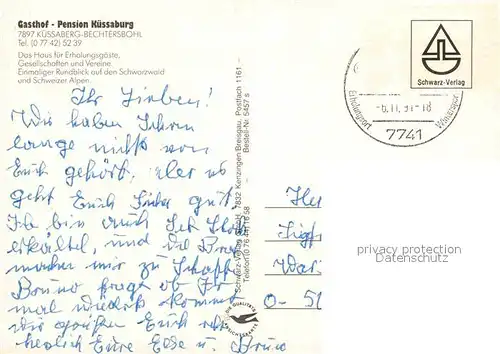 Gasthof - Pension Küssaburg
7897 KÜSSABERG-BECHTERSBOHL
Tel. (0 77 42) 52 39
Das Haus für Erholungsgäste,
Gesellschaften und Vereine.
Einmaliger Rundblick auf den Schwarzwald
und Schweizer Alpen.
Ihr Lieben!
Wir haben schon
lange nichts von
Euch gehört, aber es
geht Euch sicher gut.
Ich bin auch
erkältet, und die
machen mir zu schaffen
Bruno fragt ob Ihr
mal wieder kommt
Wir grüßen Euch
herzlich Eure u. Bruno
Schwarz-Verlag GmbH, 7832 Kenzingen/Breisgau, Postfach 1161 -
Telefon (0 76 44) 16 58 - Bestell-Nr. 5457 s
DIE QUALITÄTS
ANSICHTSKARTE
Schwarz-Verlag
-6.11.91-18
7741
Erholungsort
O-
privacy protection
Datenschutz